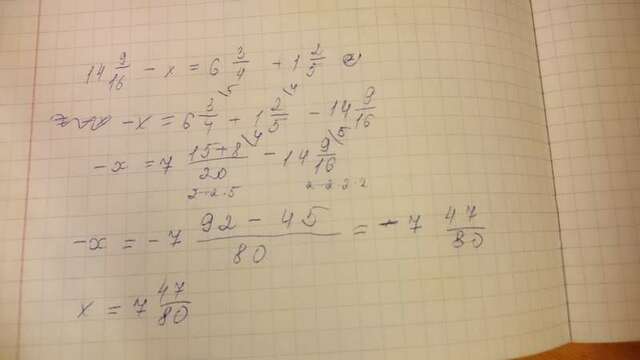 14 9/16 - x = 6 3/4 + 1 2/5
-x = 6 3/4 \5 + 1 2/5 \4 - 14 9/16
-x = 7 15+8/20 \4 - 14 9/16 \5
2·2·5 2·2·2·2
-x = -7 92-45/80 = -7 47/80
x = 7 47/80